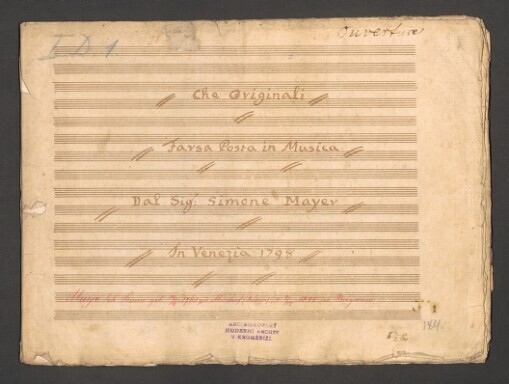 I D 1.
Ouverture
Che Originali
Farsa Posta in Musica
Dal Sigr Simone Mayer
In Venezia 1798
ARCIBISKUPSKÝ
HUDEBNÍ ARCHIV
V KROMĚŘÍŽI.
184.